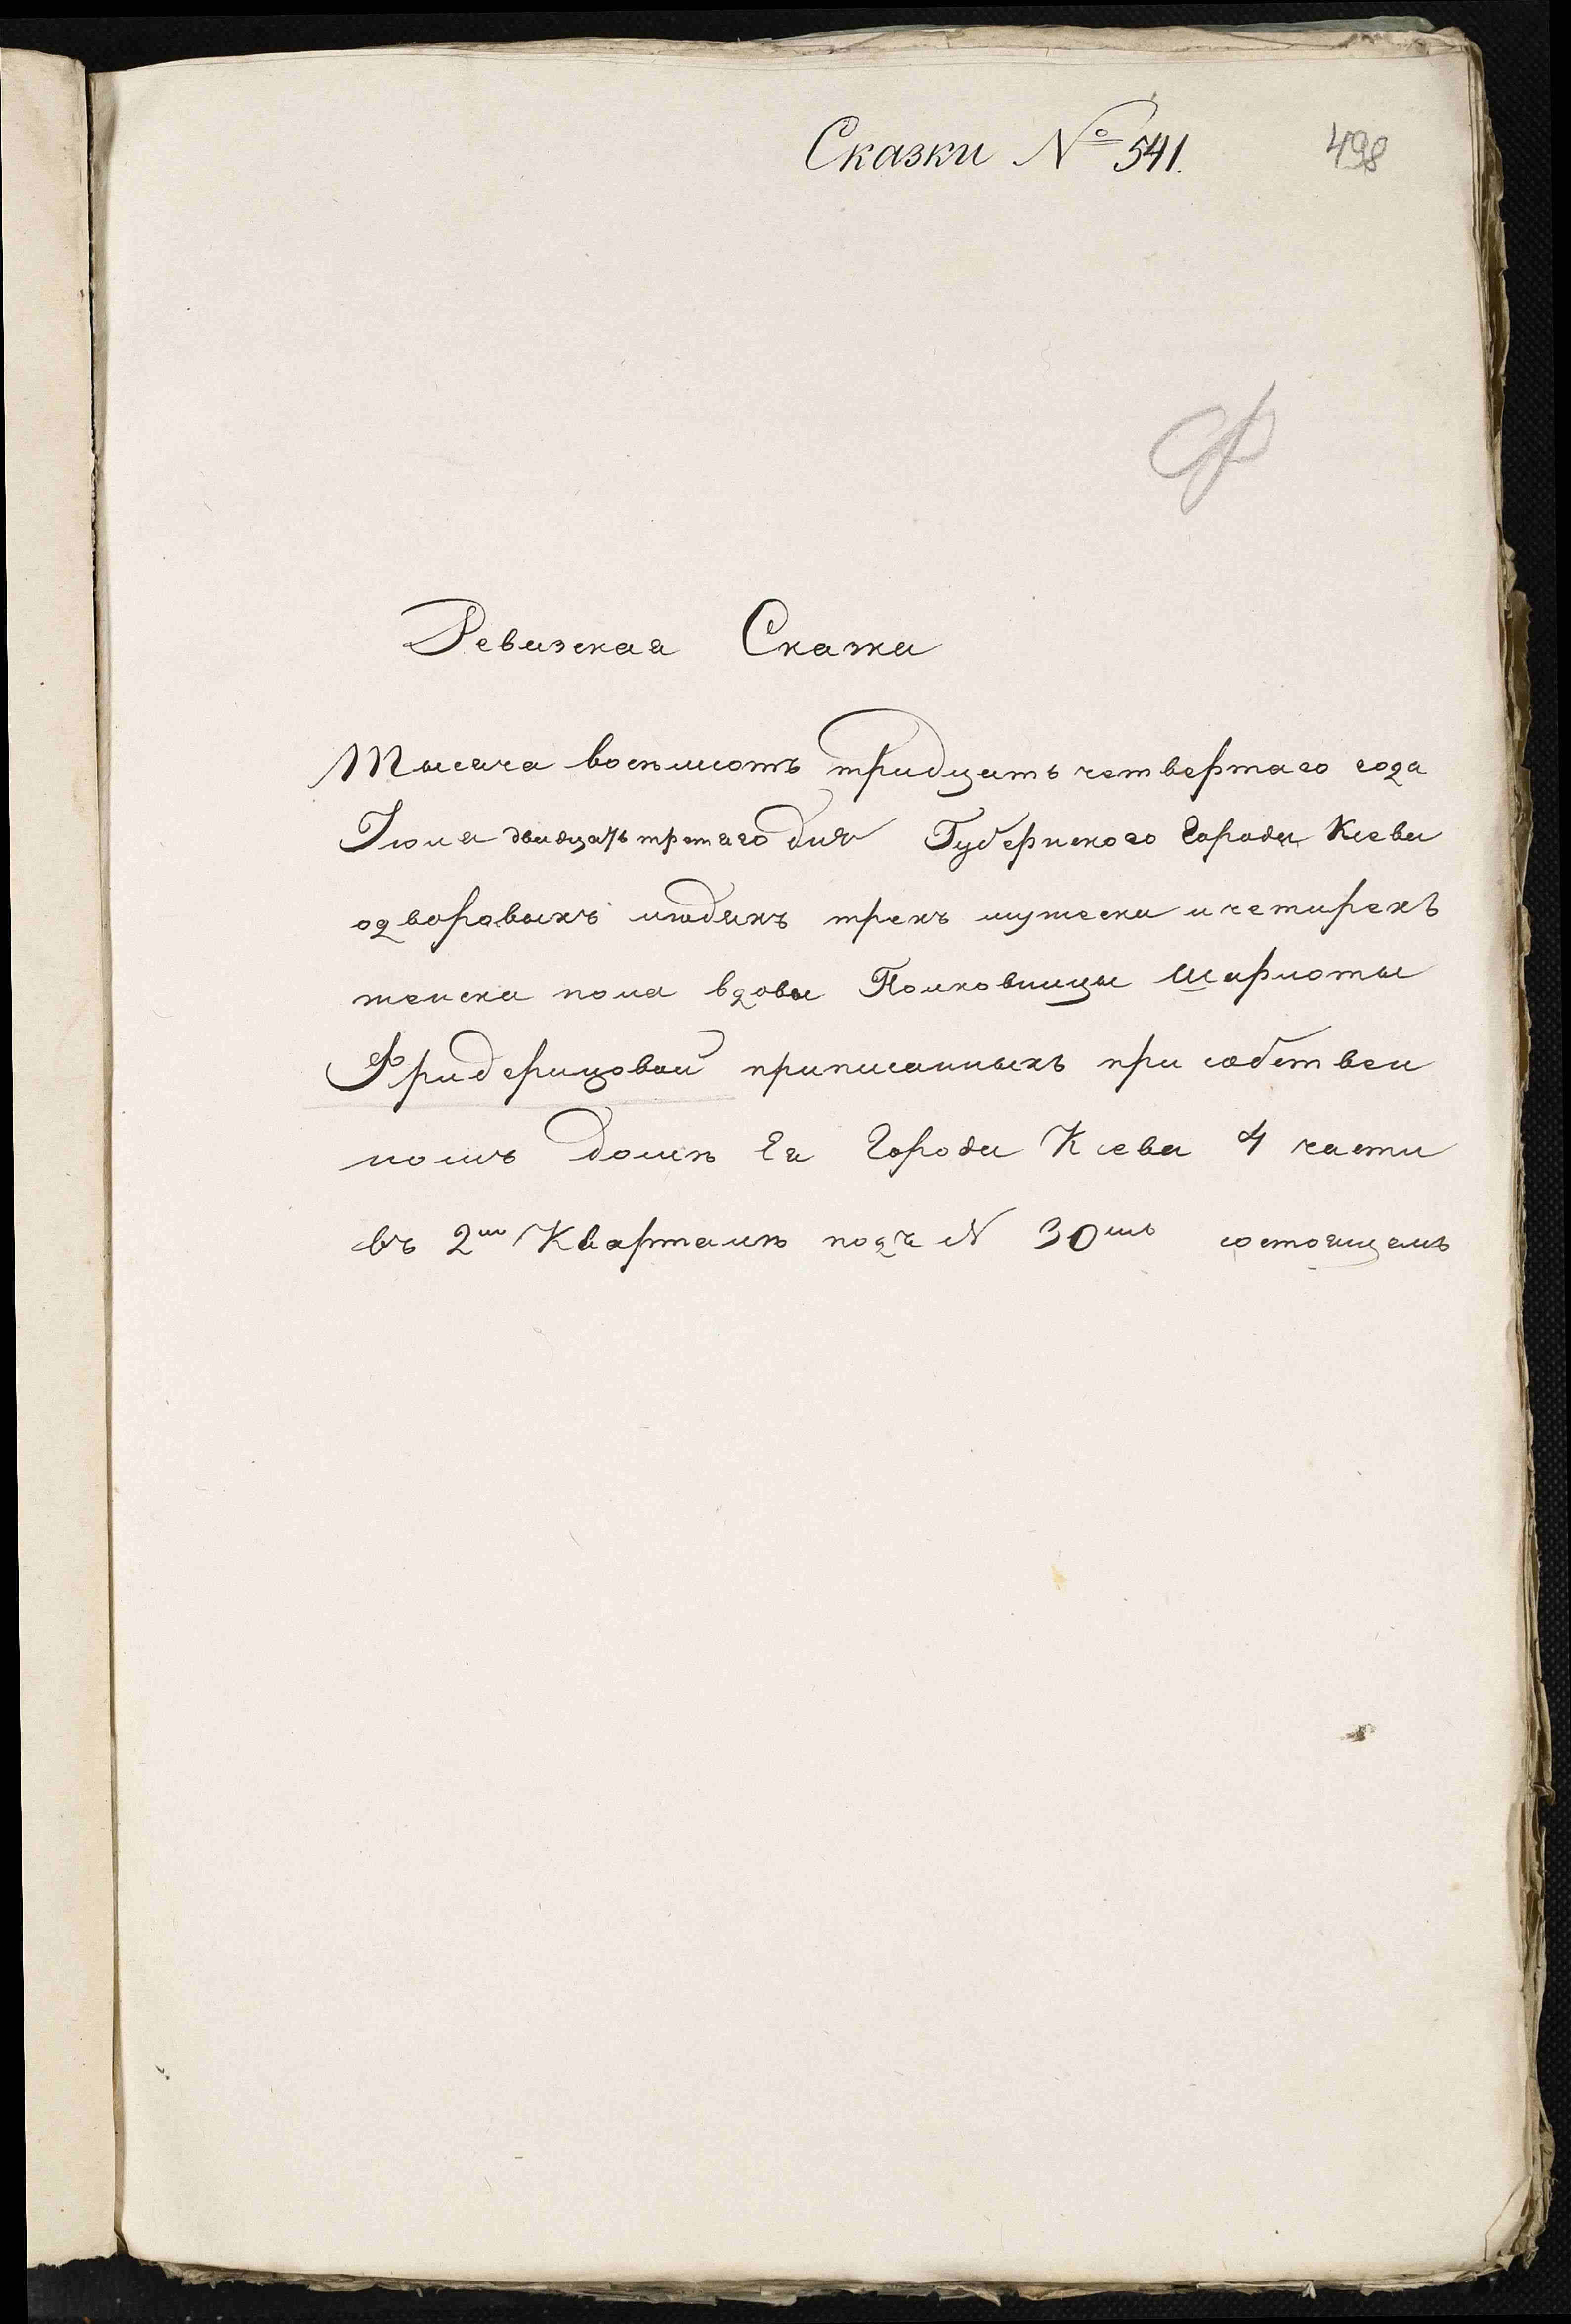 Сказки № 541. 498
Ф
Ревизская Сказка
Тысяча восьмсотъ тридцать четвертаго года
Іюля двадцать третяго дня Губернского Города Кіева
одворовыхъ людяхъ трехъ мужеска и четирехъ
женска пола вдовы Полковницы Шарлоты
Фридерицовой приписанныхъ при собствен
номъ домѣ Ея Города Кіева 4 части
въ 2мъ Кварталѣ подъ N 30мъ состоящемъ